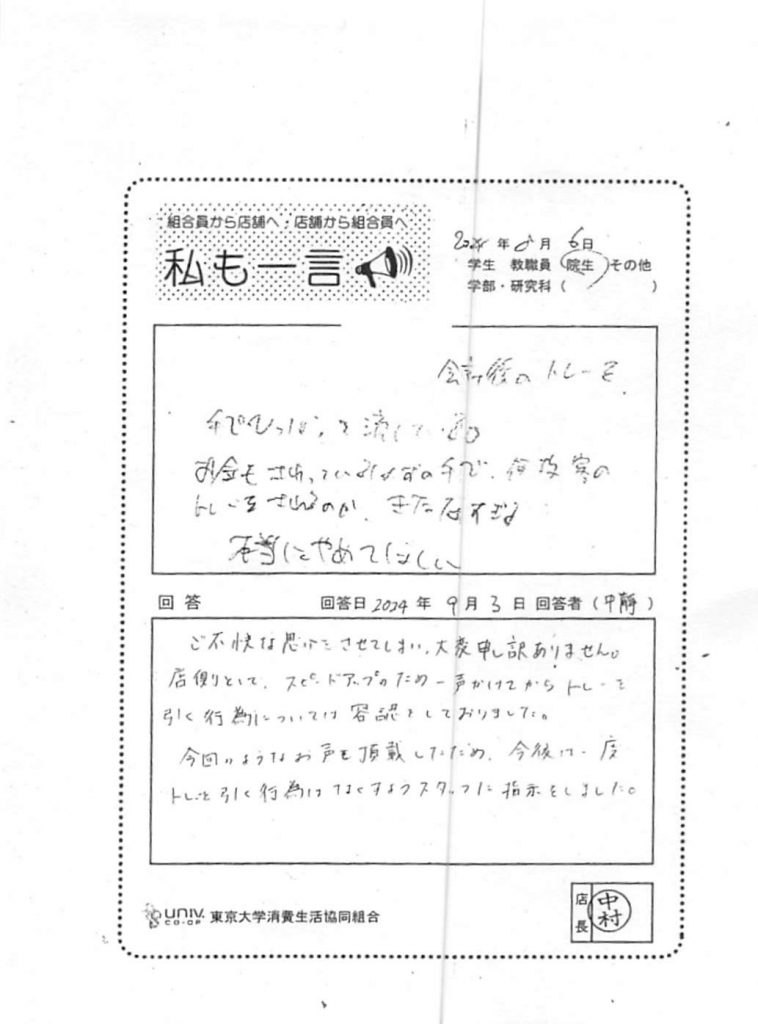 組合員から店舗へ・店舗から組合員へ
私も一言
2024年8月6日
学生 教職員 院生 その他
学部・研究科( )
会計後のトレーを
手でひっぱって流している
お金もさわっているはずの手で、何故客の
トレーをさわるのか、きたなすぎる
本当にやめてほしい
回答 回答日 2024年 9月3日 回答者(中静)
ご不快な思いをさせてしまい、大変申し訳ありません。
店側として、スピードアップのため一声かけてからトレーを
引く行為については容認をしておりました。
今回のようなお声を頂戴したため、今後は一度
トレーを引く行為はなくすようスタッフに指示をしました。
UNIV. CO-OP 東京大学消費生活協同組合
店長 中村